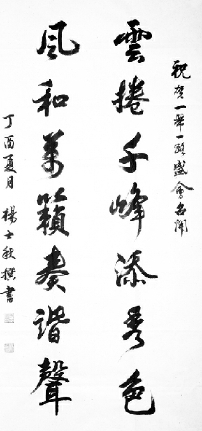 祝賀一帶一路盛會召開
雲捲千峰添秀色
風和萬籟奏諧聲
丁酉夏月 楊士 撰書